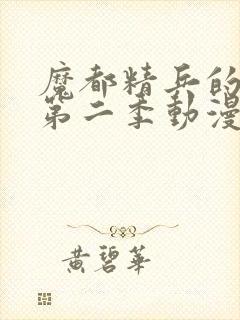 魔都精兵的
第二季動漫
黃碧華